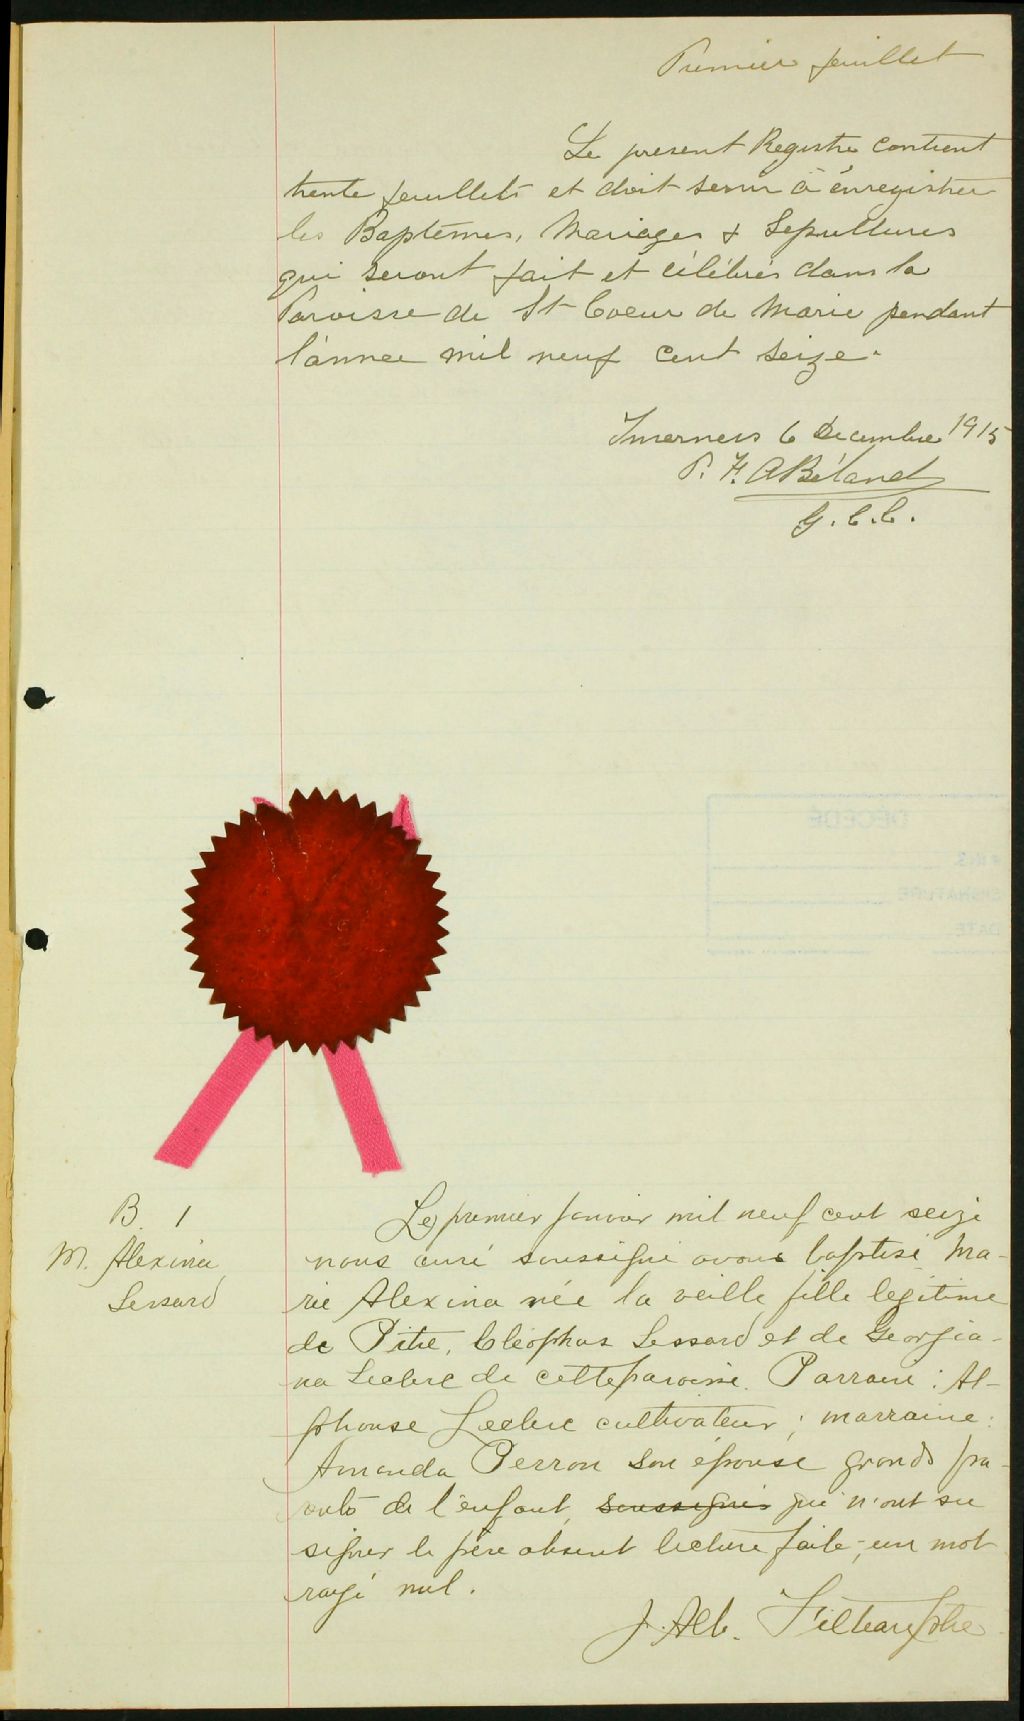 Premier feuillet
Le present Registre contient
trente feuillets et doit servir à enregistrer
les Baptêmes, Mariages & Sepultures
qui seront fait et célébrés dans la
Paroisse de St Coeur de Marie pendant
l'année mil neuf cent seize.
Inverness 6 Decembre 1915
P. F. A Béland
G. C. C.
DÉCÉDÉ
# INS.
SIGNATURE
DATE
B. 1
M. Alexina
Lessard
Le premier janvier mil neuf cent seize
nous curé soussigné avons baptisé Ma-
rie Alexina née la veille fille legitime
de Pitre, Cléophas Lessard et de Georgia-
na Leclerc de cette paroisse. Parrain : Al-
phonse Leclerc cultivateur ; marraine :
Amanda Perron son épouse grands pa-
rents de l'enfant, soussignés qui n'ont su
signer le père absent lecture faite, un mot
rayé nul.
J. Alb.